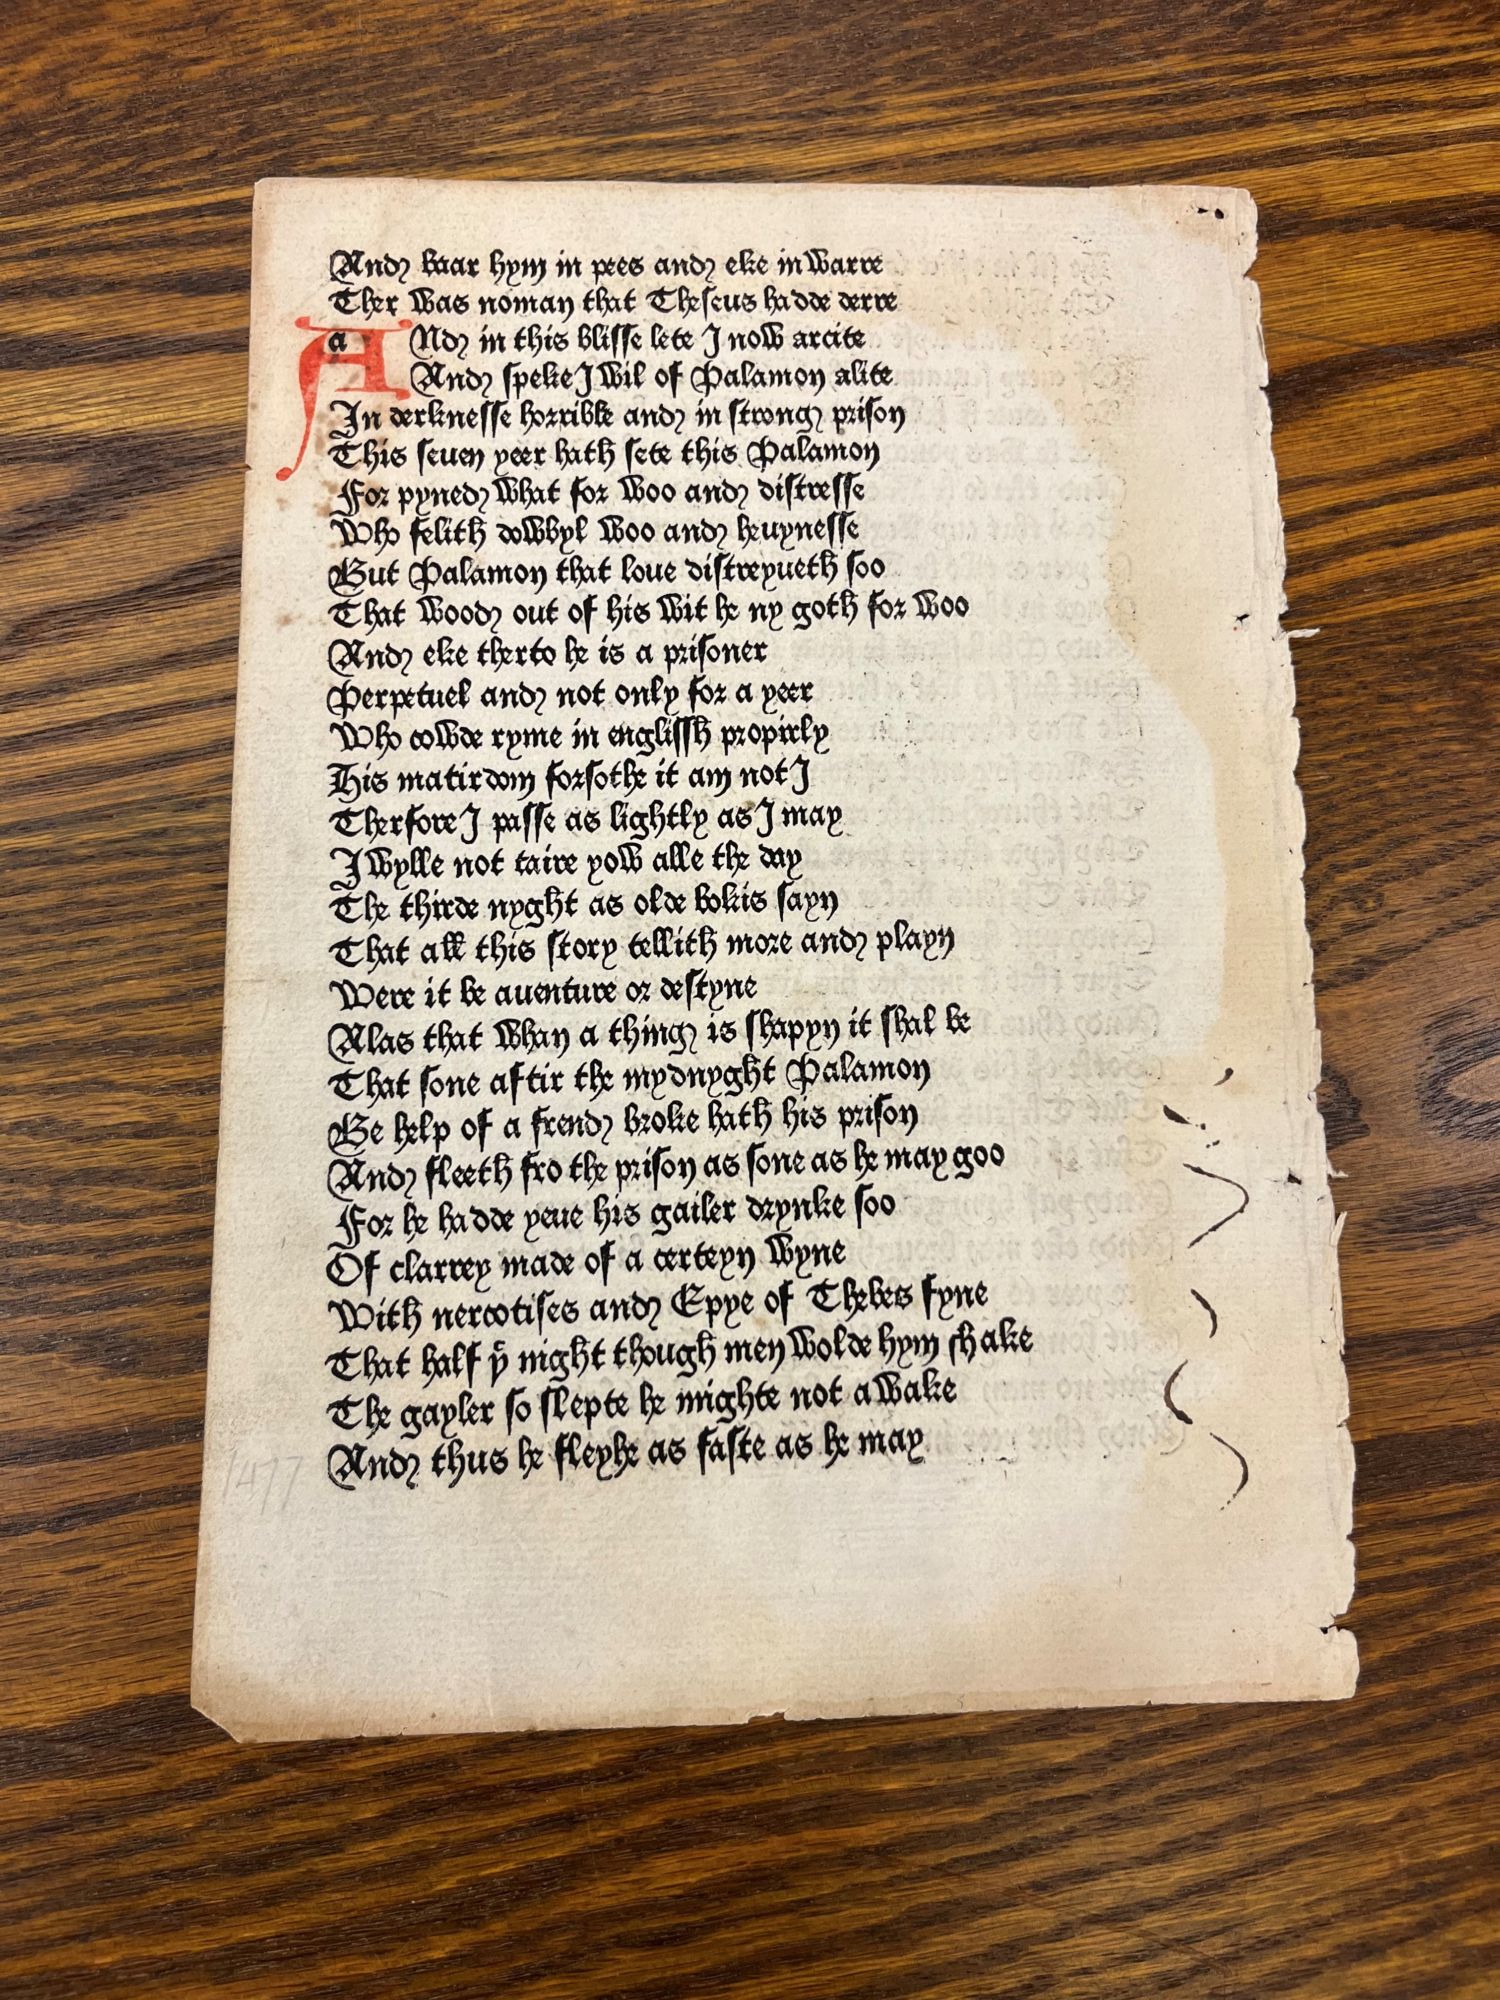 And baar hym in pees and eke in warre
Ther was noman that Theseus hadde derre
aNd in this blisse lete I now arcite
And speke I wil of Palamon alite
In derknesse horrible and in strong prison
This seuen yeer hath sete this Palamon
For pyned what for woo and distresse
Who felith dowbyl woo and heuynesse
But Palamon that loue distreyueth soo
That wood out of his wit he ny goth for woo
And eke therto he is a prisoner
Perpetuel and not only for a yeer
Who cowde ryme in englissh propirly
His matirdom forsothe it am not I
Therfore I passe as lightly as I may
I wylle not taire yow alle the day
The thirde nyght as olde bokis sayn
That all this story tellith more and playn
Were it be auenture or destyne
Alas that whan a thing is shapyn it shal be
That sone aftir the mydnyght Palamon
Be help of a frend broke hath his prison
And fleeth fro the prison as sone as he may goo
For he hadde yeue his gailer drynke soo
Of clarrey made of a certeyn wyne
With nercotises and Epye of Thebes fyne
That half yͤ night though men wolde hym shake
The gayler so slepte he mighte not awake
And thus he fleyhe as faste as he may
1477